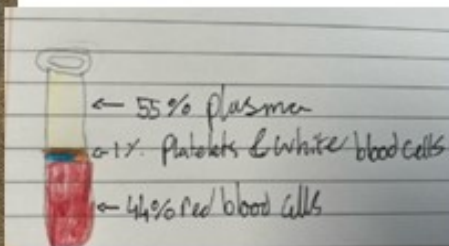 ← 55% plasma
← 1%. Platelets & white blood cells
← 44% red blood cells